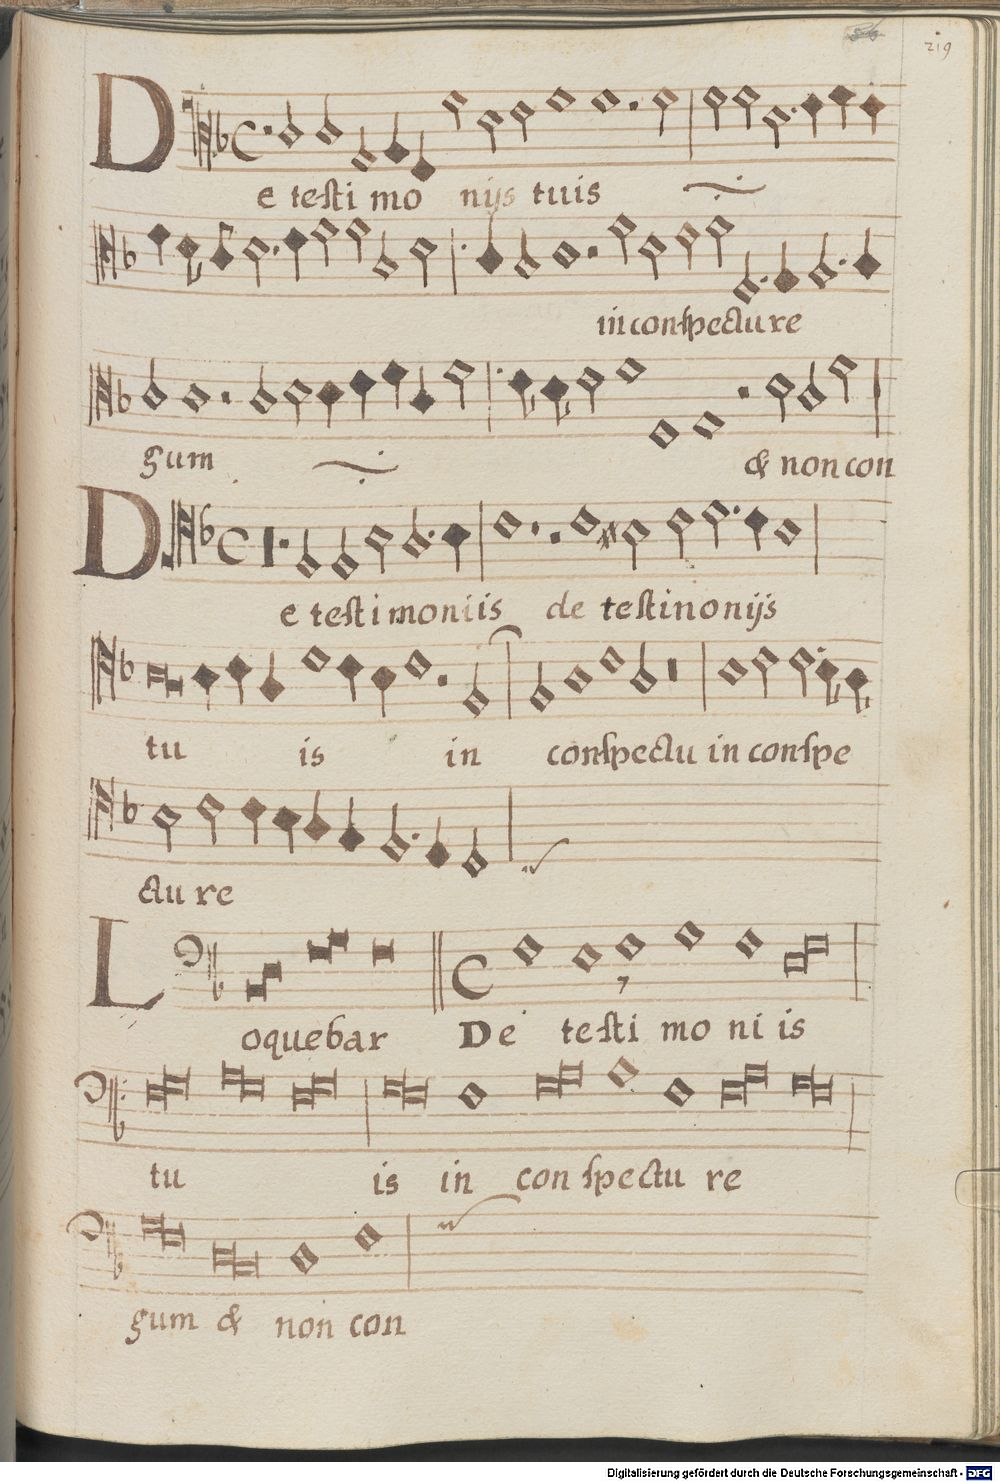 219
De testi mo nijs tuis
in conspectu re
gum & non con
De testimoniis de testinonijs
tu is in conspectu in conspe
ctu re
Loquebar De testi mo ni is
tu is in con spectu re
gum & non con
Digitalisierung gefördert durch die Deutsche Forschungsgemeinschaft - DFG